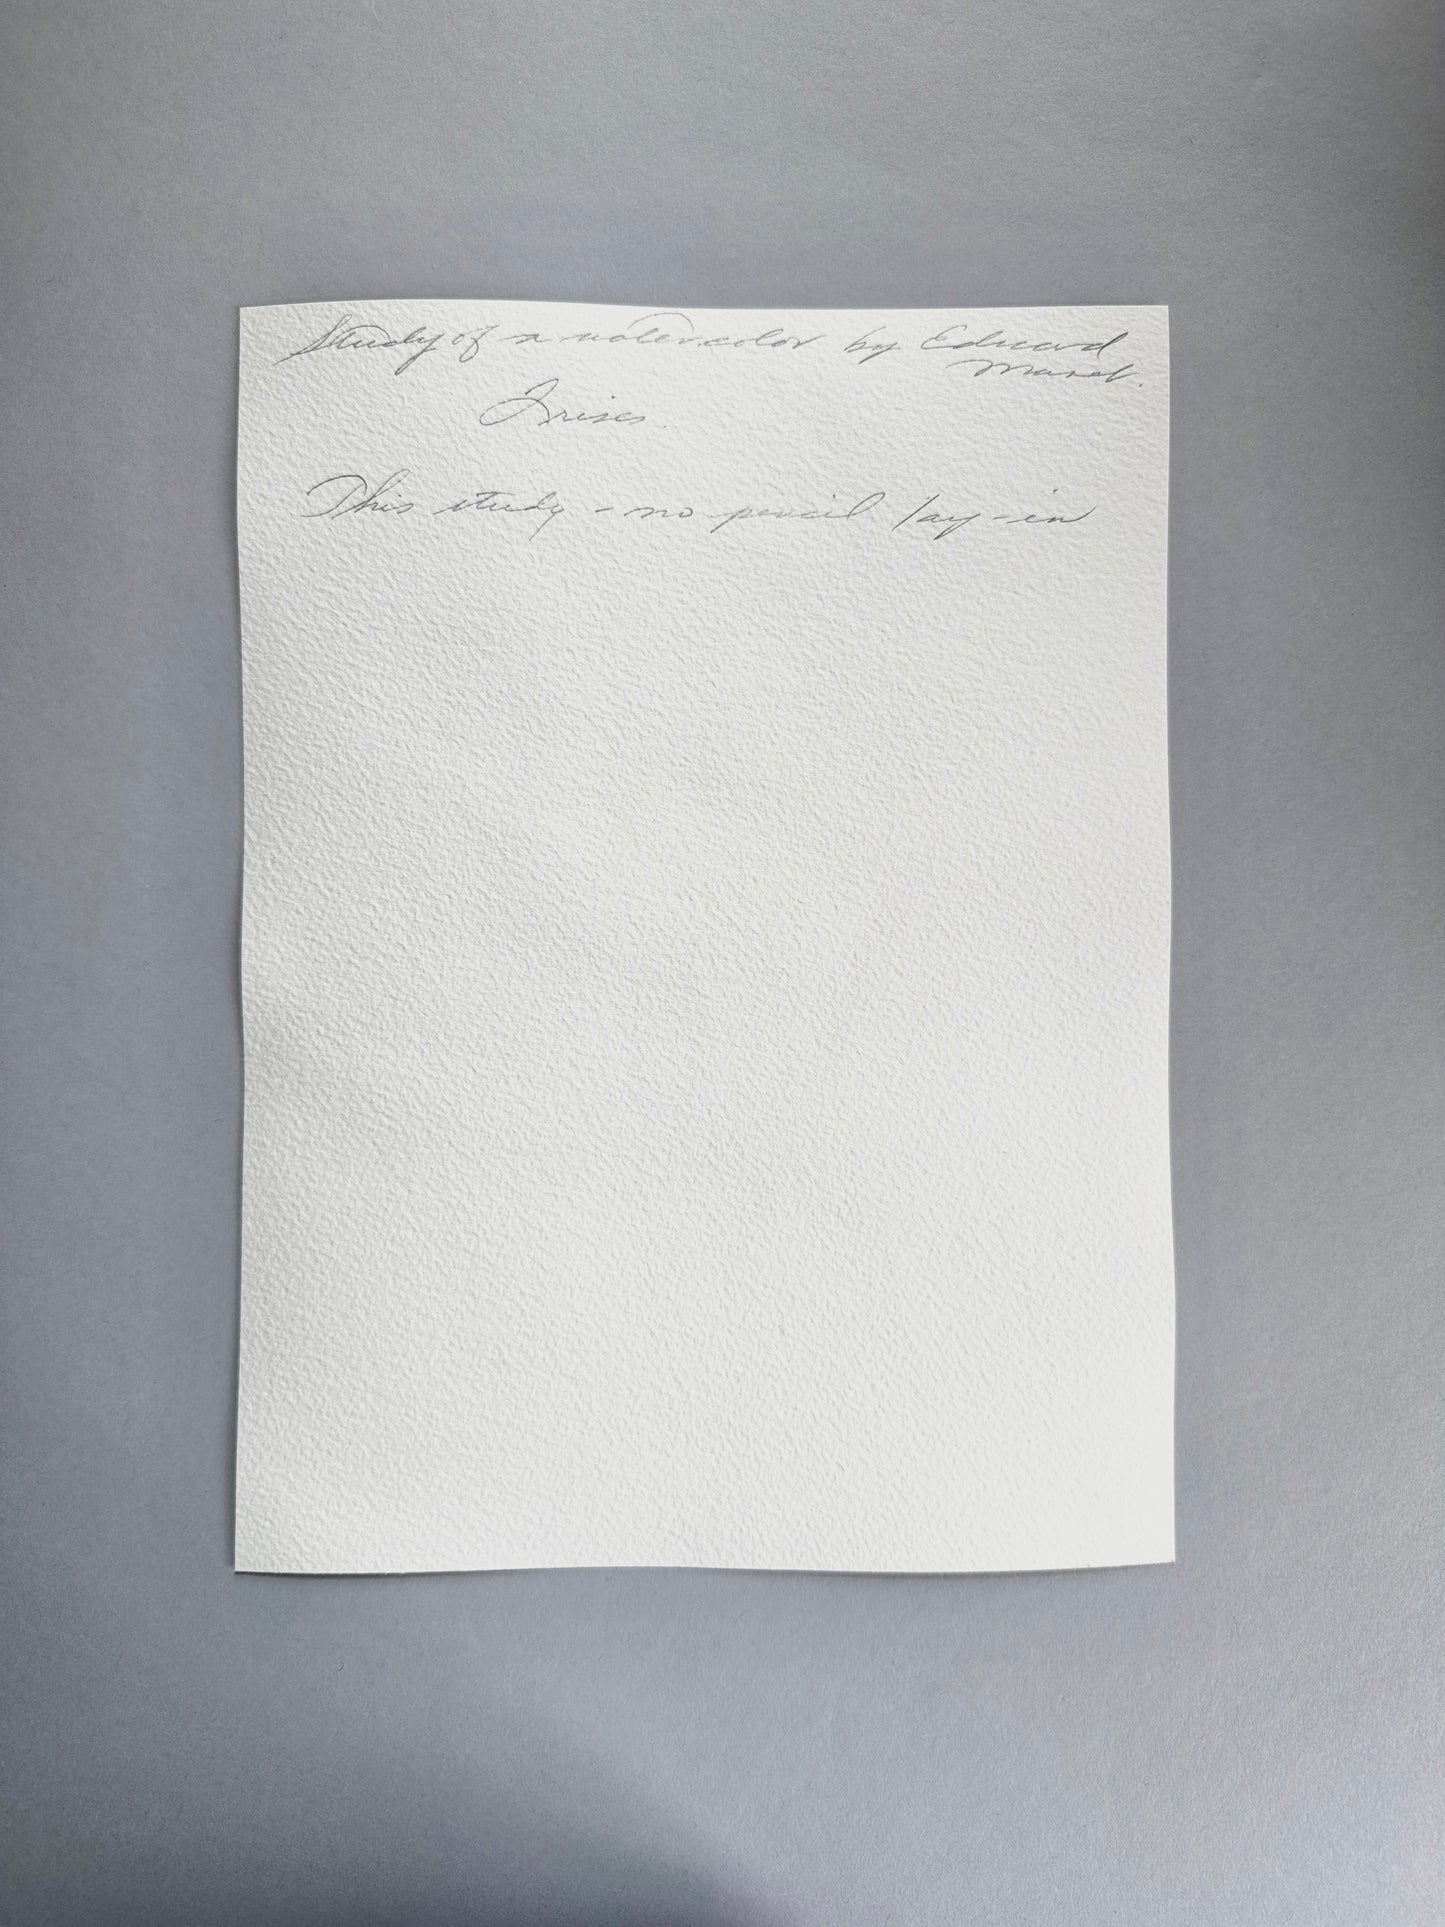 Study of a watercolor by Edward
Manet.
Irises.
This study - no pencil lay-in